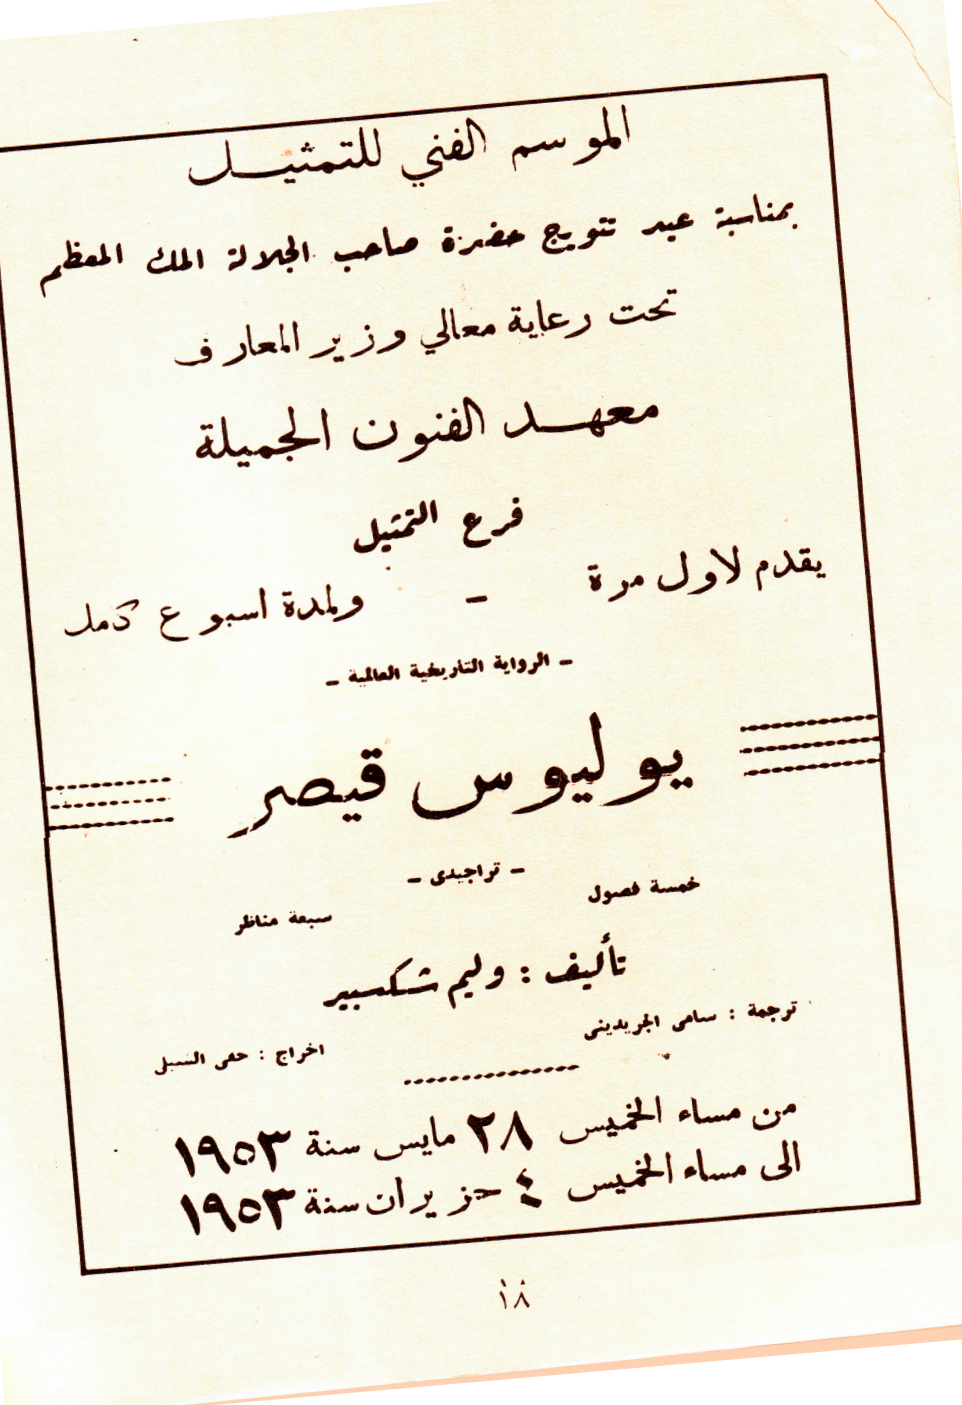 الموسم الفني للتمثيل
بمناسبة عيد تتويج حضرة صاحب الجلالة الملك المعظم
تحت رعاية معالي وزير المعارف
معهد الفنون الجميلة
فرع التمثيل
يقدم لاول مرة - ولمدة اسبوع كامل
- الرواية التاريخية العالمية -
يوليوس قيصر
- تراجيدى -
خمسة فصول سبعة مناظر
تأليف : وليم شكسبير
ترجمة : سامى الجريدينى اخراج : حقى الشبلى
من مساء الخميس ٢٨ مايس سنة ١٩٥٣
الى مساء الخميس ٤ حزيران سنة ١٩٥٣
١٨